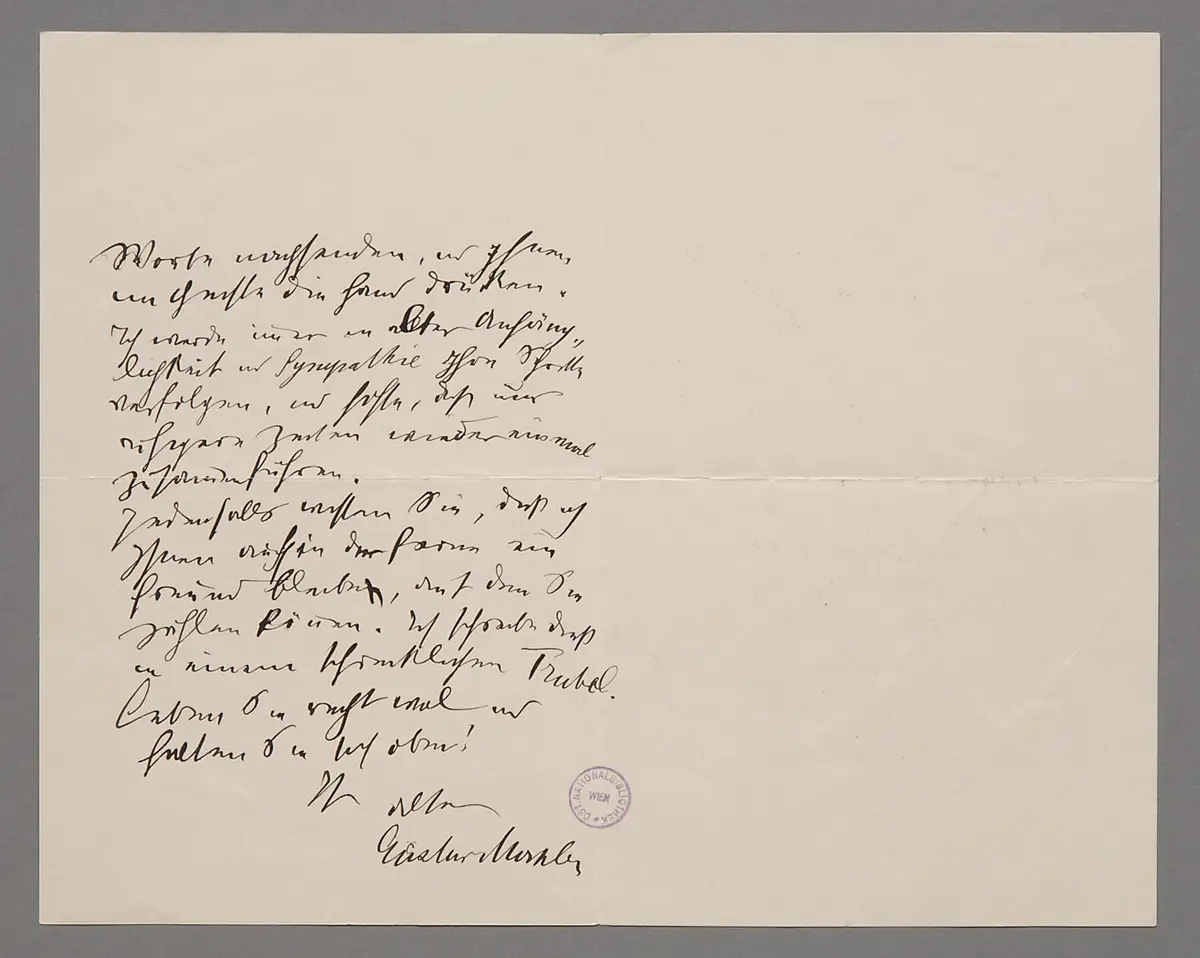 Worte nachsenden, und Ihnen
im Geiste die Hand drücken.
Ich werde immer in alter Anhäng„
lichkeit und Sympathie Ihre Schritte
verfolgen, und hoffe, daß uns
ruhigere Zeiten wieder einmal
zusammenführen.
Jedenfalls wissen Sie, daß ich
Ihnen auch in der Ferne ein
Freund bleibe, auf den Sie
zählen können. Ich schreibe dieß
in einem schrecklichen Trubel.
Leben Sie recht wol und
halten Sie sich oben!
Ihr alter
Gustav Mahler
ÖST. NATIONALBIBLIOTHEK
WIEN